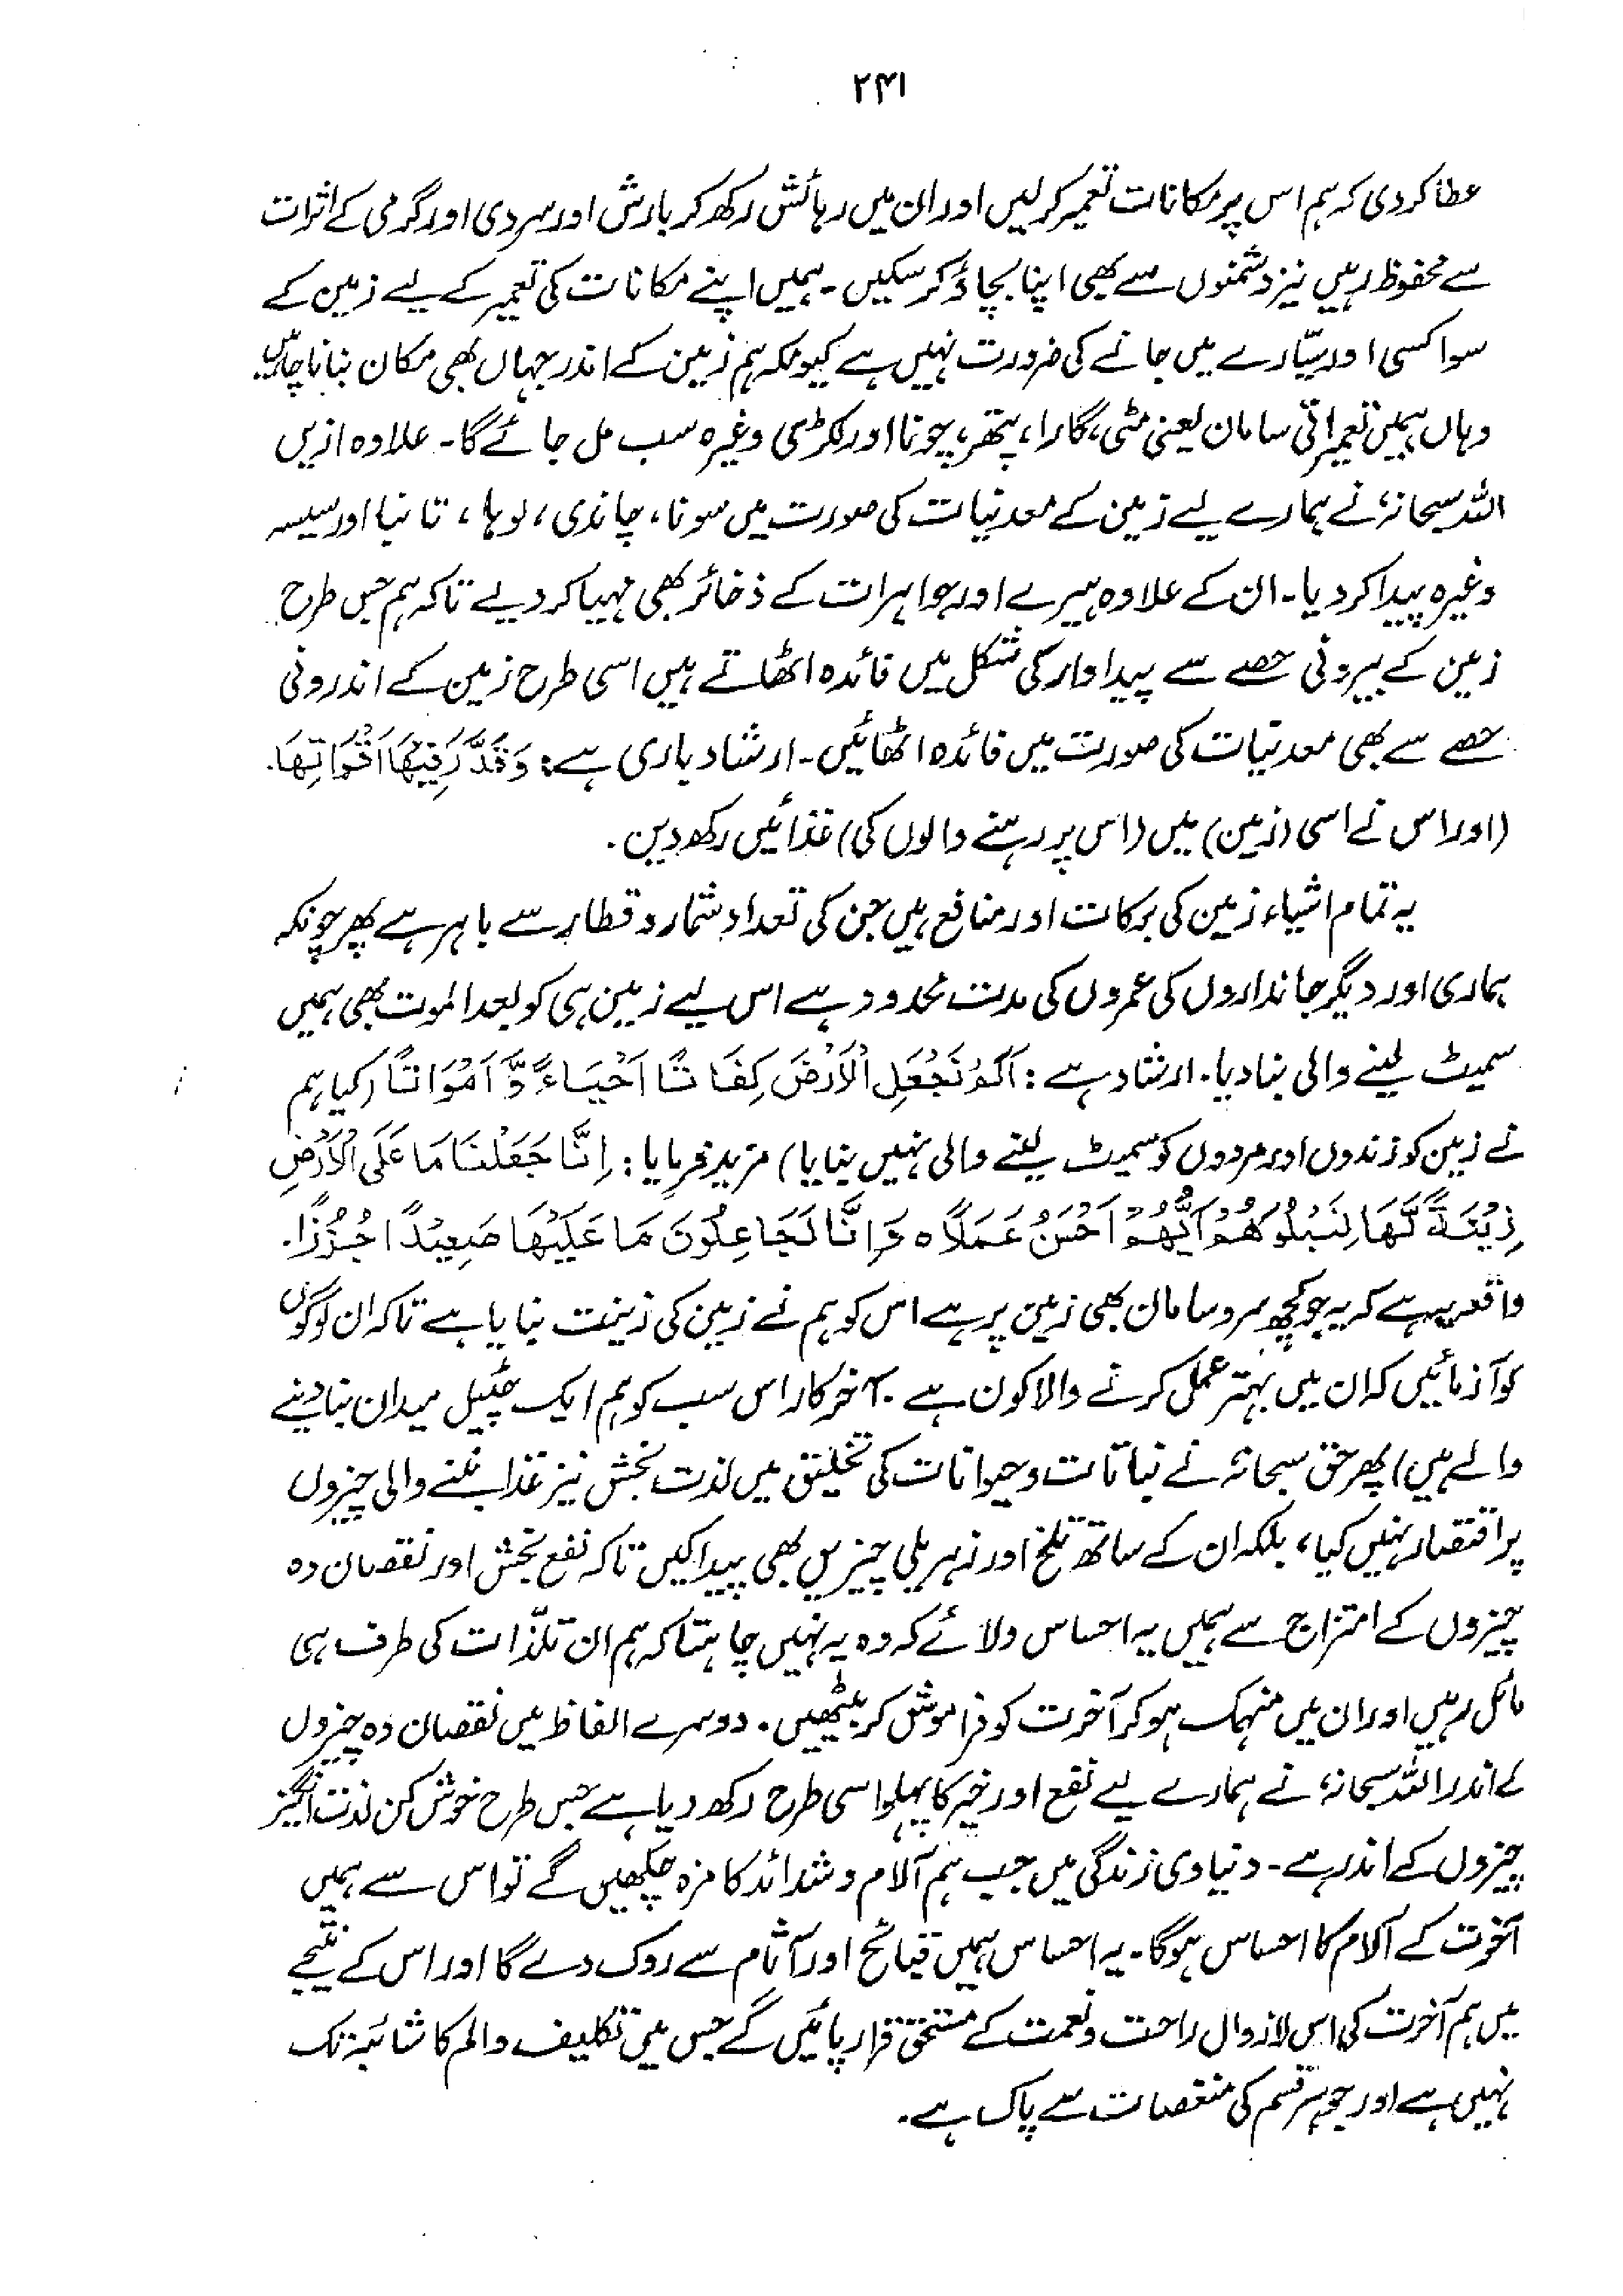 ۲۴۱
عطا کر دی کہ ہم اس پر مکانات تعمیر کر لیں اور ان میں رہائش رکھ کر بارش اور سردی اور گرمی کے اثرات
سے محفوظ رہیں نیز دشمنوں سے بھی اپنا بچاؤ کر سکیں۔ ہمیں اپنے مکانات کی تعمیر کے لیے زمین کے
سوا کسی اور سیّارے میں جانے کی ضرورت نہیں ہے کیونکہ ہم زمین کے اندر جہاں بھی مکان بنانا چاہیں
وہاں ہمیں تعمیراتی سامان یعنی مٹی، گارا، پتھر، چونا اور لکڑی وغیرہ سب مل جائے گا۔ علاوہ ازیں
اللہ سبحانہٗ نے ہمارے لیے زمین کے معدنیات کی صورت میں سونا، چاندی، لوہا، تانبا اور سیسہ
وغیرہ پیدا کر دیا۔ ان کے علاوہ ہیرے اور جواہرات کے ذخائر بھی مہیا کر دیے تاکہ ہم جس طرح
زمین کے بیرونی حصے سے پیداوار کی شکل میں فائدہ اٹھاتے ہیں اسی طرح زمین کے اندرونی
حصے سے بھی معدنیات کی صورت میں فائدہ اٹھائیں۔ ارشاد باری ہے: وَقَدَّرَ فِیْهَا اَقْوَاتَهَا۔
(اور اس نے اسی (زمین) میں (اس پر رہنے والوں کی) غذائیں رکھ دیں۔
یہ تمام اشیاء زمین کی برکات اور منافع ہیں جن کی تعداد شمار و قطار سے باہر ہے پھر چونکہ
ہماری اور دیگر جانداروں کی عمروں کی مدت محدود ہے اس لیے زمین ہی کو بعد الموت بھی ہمیں
سمیٹ لینے والی بنا دیا۔ ارشاد ہے: اَلَمْ نَجْعَلِ الْاَرْضَ كِفَاتًا اَحْيَاءً وَّ اَمْوَاتًا (کیا ہم
نے زمین کو زندوں اور مردوں کو سمیٹ لینے والی نہیں بنایا) مزید فرمایا: اِنَّا جَعَلْنَا مَا عَلَى الْاَرْضِ
زِيْنَةً لَّهَا لِنَبْلُوَهُمْ اَيُّهُمْ اَحْسَنُ عَمَلًا ہ وَ اِنَّا لَجَاعِلُوْنَ مَا عَلَيْهَا صَعِيْدًا جُرُزًا۔
واقعہ یہ ہے کہ یہ جو کچھ سر و سامان بھی زمین پر ہے اس کو ہم نے زمین کی زینت بنایا ہے تاکہ ان لوگوں
کو آزمائیں کہ ان میں بہتر عمل کرنے والا کون ہے۔ آخر کار اس سب کو ہم ایک چٹیل میدان بنا دینے
والے ہیں) پھر حق سبحانہٗ نے نباتات و حیوانات کی تخلیق میں لذت بخش نیز غذا بننے والی چیزوں
پر اقتصار نہیں کیا، بلکہ ان کے ساتھ تلخ اور زہریلی چیزیں بھی پیدا کیں تاکہ نفع بخش اور نقصان دہ
چیزوں کے امتزاج سے ہمیں یہ احساس دلائے کہ وہ یہ نہیں چاہتا کہ ہم ان تلذّات کی طرف ہی
مائل رہیں اور ان میں منہمک ہو کر آخرت کو فراموش کر بیٹھیں۔ دوسرے الفاظ میں نقصان دہ چیزوں
کے اندر اللہ سبحانہٗ نے ہمارے لیے نفع اور خیر کا پہلو اسی طرح رکھ دیا ہے جس طرح خوش کن لذت انگیز
چیزوں کے اندر ہے۔ دنیاوی زندگی میں جب ہم آلام و شدائد کا مزہ چکھیں گے تو اس سے ہمیں
آخرت کے آلام کا احساس ہوگا۔ یہ احساس ہمیں قبائح اور آثام سے روک دے گا اور اس کے نتیجے
میں ہم آخرت کی اس لازوال راحت و نعمت کے مستحق قرار پائیں گے جس میں تکلیف و الم کا شائبہ تک
نہیں ہے اور جو ہر قسم کی منغصات سے پاک ہے۔